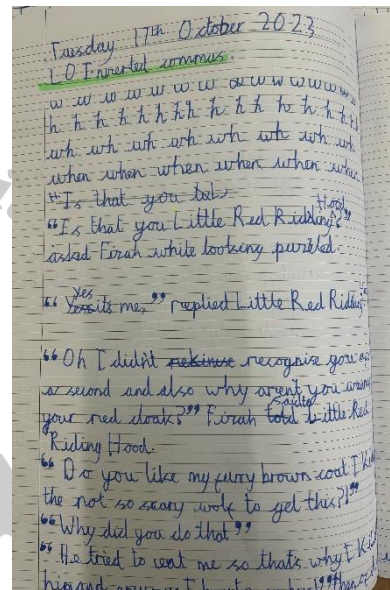 Tuesday 17th October 2023
LO Inverted commas.
w w w w w w w w w w w w w
h h h h h h h h h h h h h
wh wh wh wh wh wh wh wh
when when when when when when
"Is that you
"Is that you Little Red Riding Hood?"
asked Firah while looking puzzled.
"yes its me," replied Little Red Riding
"Oh I didn't recognise you
a second and also why arent you
your red cloak?" Firah said to Little Red
Riding Hood.
"Do you like my furry brown coat I
the not so scary wolf to get this?!"
"Why did you do that"
"He tried to eat me so that's why I
him and